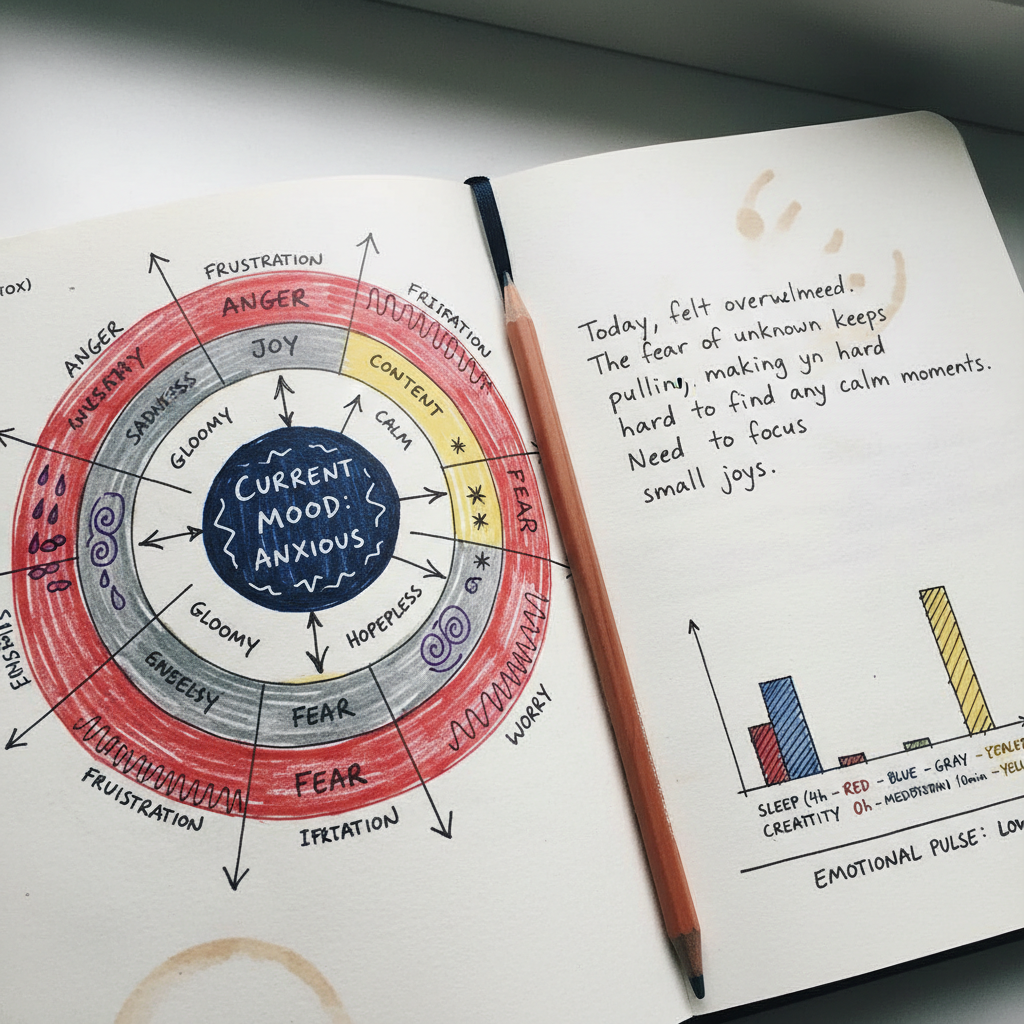 TOX)
FRUSTRATION
ANGER
FRIIFATION
ANGER
JOY
SADNESS
CONTENT
GLOOMY
CALM
CURRENT
MOOD:
ANXIOUS
FEAR
GLOOMY
HOPEPLESS
ENEELSY
FEAR
WORRY
FEAR
FRUISTRATION
Today, felt overwlmeed.
The fear of unknown keeps
pulliny, making yn hard
hard to find any calm moments.
Need to focus
small joys.
SLEEP (4h - RED - BLUE - GRAY -
CREATTITY 0h - 10min - YELL
EMOTIONAL PULSE: LOW